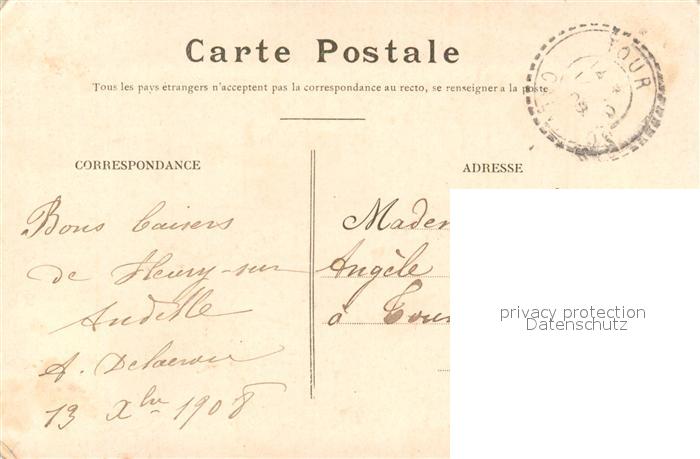 Carte Postale
Tous les pays étrangers n'acceptent pas la correspondance au recto, se renseigner a la poste
CORRESPONDANCE
ADRESSE
Bons baisers
de Fleury-sur
Andelle
A. Delacroix
13 Xbre 1908
Madem
Angèle
à Tour
TOUR
privacy protection
Datenschutz